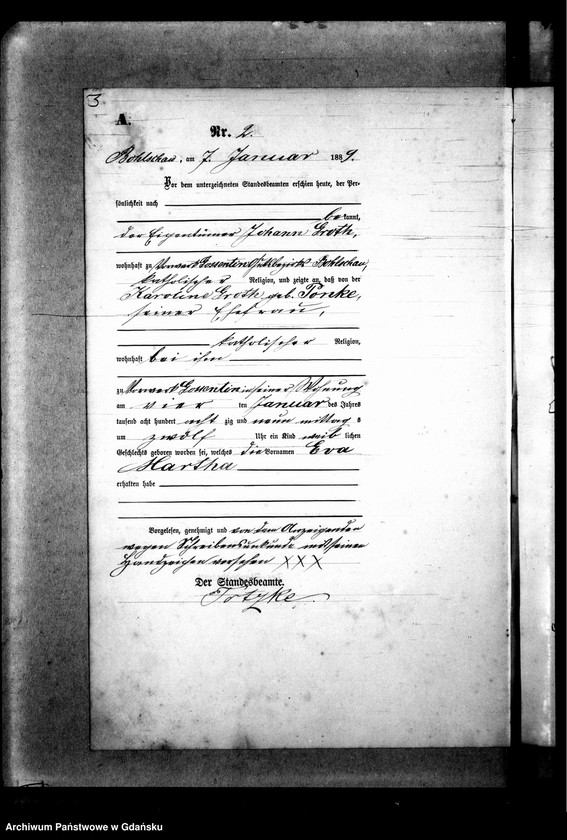 3
A.
Nr. 2.
Bohlschau, am 7. Januar 1889.
Vor dem unterzeichneten Standesbeamten erschien heute, der Per-
sönlichkeit nach
be kannt,
der Eigentümer Johann Groth,
wohnhaft zu Vorwerk Gossentin Gutsbezirks Bohlschau,
katholischer Religion, und zeigte an, daß von der
Karoline Groth geb. Ponke,
seiner Ehefrau,
katholischer Religion,
wohnhaft bei ihm
zu Vorwerk Gossentin in seiner Wohnung
am vier ten Januar des Jahres
tausend acht hundert acht zig und neun mittag s
um zwölf Uhr ein Kind weib lichen
Geschlechts geboren worden sei, welches die Vornamen Eva
Martha
erhalten habe
Vorgelesen, genehmigt und von dem Anzeigenden
wegen Schreibensunkunde mit seinem
Handzeichen versehen XXX
Der Standesbeamte.
Archiwum Państwowe w Gdańsku